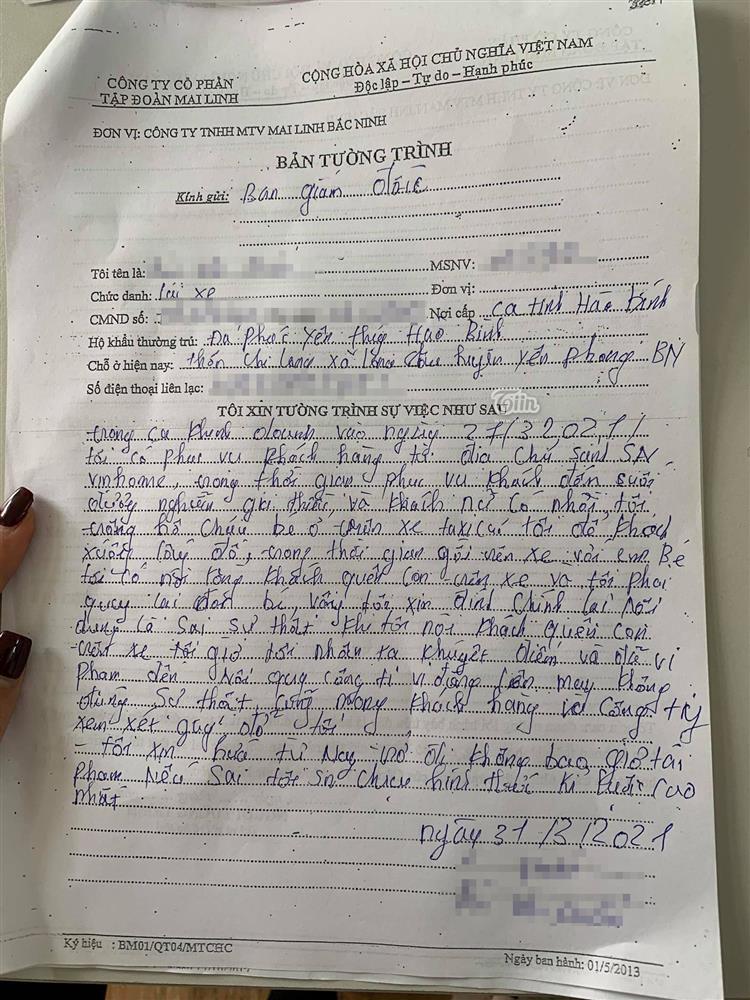 CÔNG TY CỔ PHẦN
TẬP ĐOÀN MAI LINH
CỘNG HÒA XÃ HỘI CHỦ NGHĨA VIỆT NAM
Độc lập – Tự do – Hạnh phúc
ĐƠN VỊ: CÔNG TY TNHH MTV MAI LINH BẮC NINH
BẢN TƯỜNG TRÌNH
Kính gửi: Ban giám đốc
Tôi tên là: MSNV:
Chức danh: lái xe Đơn vị:
CMND số: Nơi cấp ca tỉnh Hòa Bình
Hộ khẩu thường trú: Đa phúc yên thủy Hòa Bình
Chỗ ở hiện nay: thôn Chi long xã long châu huyện yên phong BN
Số điện thoại liên lạc:
TÔI XIN TƯỜNG TRÌNH SỰ VIỆC NHƯ SAU
trong ca kinh doanh vào ngày 27/3 2021/
tôi có phục vụ khách hàng từ địa chỉ SN
vinhome, trong thời gian phục vụ khách đến
đường nguyễn gia thiều, và khách nữ có nhờ tôi
trông hộ cháu bé ở trên xe taxi tôi để khách
xuống lấy đồ, trong thời gian trên xe với em Bé
tôi có nói rằng khách quên con trên xe và tôi phải
quay lại đón bé, vâng tôi xin đính chính lại nội
dung là sai sự thật khi tôi nói khách quên con
trên xe tôi giờ tôi nhận ra khuyết điểm và đã vi
phạm đến nội quy công ti vì đăng lên mạng không
đúng sự thật, cũng mong khách hàng và công ty
xem xét giúp đỡ tôi
- tôi xin hứa từ nay trở đi không bao giờ tái
phạm nếu sai tôi xin chịu hình thức kỉ luật cao
nhất
ngày 31/3/2021
Ký hiệu : BM01/QT04/MTCHC
Ngày ban hành: 01/5/2013